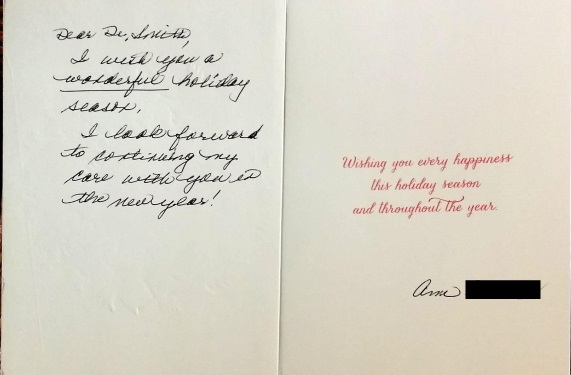 Dear Dr. Smith,
I wish you a
wonderful holiday
season.
I look forward
to continuing my
care with you in
the new year!
Wishing you every happiness
this holiday season
and throughout the year.